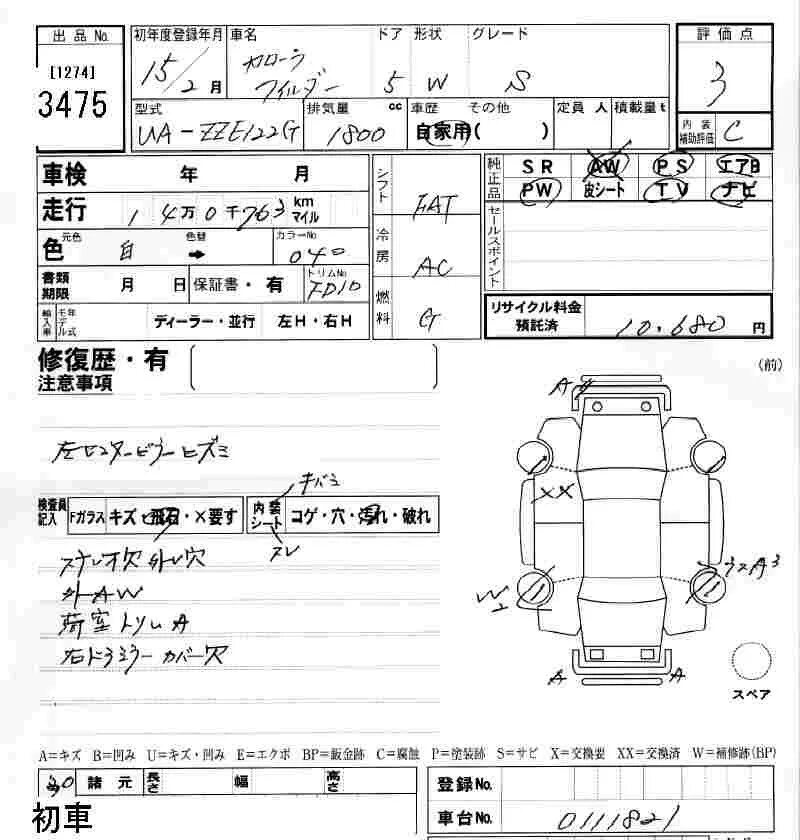 出品No.
[1274]
3475
初年度登録年月 車名 ドア 形状 グレード
15/2月 カローラ フィルダー 5 W S
型式 排気量 cc 車歴 その他 定員 人 積載量 t
UA-ZZE122G 1800 自家用( )
評価点
3
内装補助評価 C
車検 年 月
走行 1 4万0千763 km マイル
元色 色替 カラーNo
色 白 → 040
書類期限 月 日 保証書・有 トリムNo FD10
輸入車 モデル年式 ディーラー・並行 左H・右H
シフト FAT
冷房 AC
燃料 G
純正品 SR AW PS エアB
PW 皮シート TV ナビ
セールスポイント
リサイクル料金預託済 10,680 円
修復歴・有
注意事項
(前)
左センターピラーヒズミ
検査員記入 Fガラス キズ・飛石・×要す 内装シート コゲ・穴・汚れ・破れ
キバミ
スレ
ステレオ欠 外し穴
外AW
荷室トリムA
右ドアミラーカバー欠
A
XX
W2
A3
A A
スペア
A=キズ B=凹み U=キズ・凹み E=エクボ BP=鈑金跡 C=腐蝕 P=塗装跡 S=サビ X=交換要 XX=交換済 W=補修跡(BP)
諸元 長さ 幅 高さ
登録No.
車台No. 0111821
初車